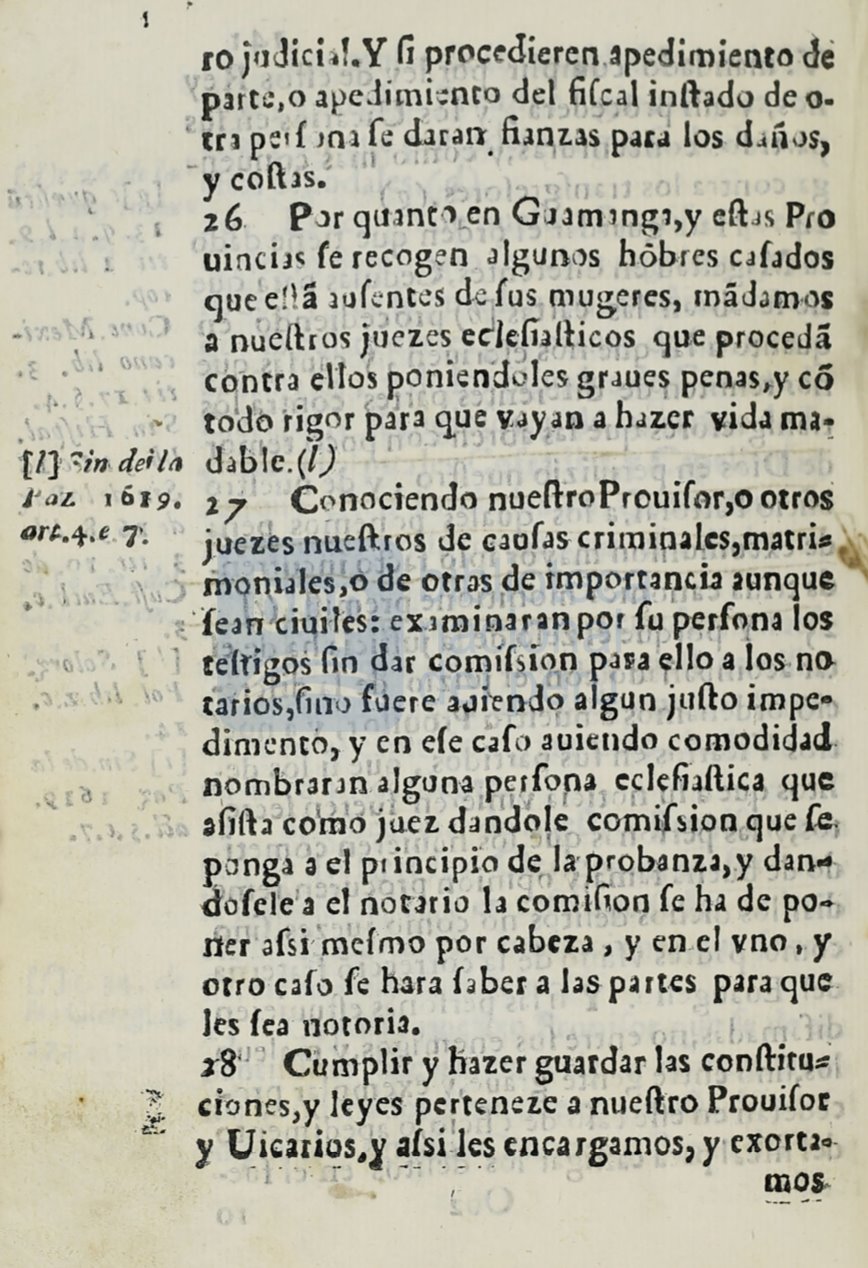 ro judicial. Y ſi procedieren apedimiento de
parte, o apedimiento del fiſcal inſtado de o-
tra perſona ſe daran fianzas para los daños,
y coſtas.
26 Por quanto en Guamanga, y eſtas Pro
uincias ſe recogen algunos hõbres caſados
que eſtã auſentes de ſus mugeres, mãdamos
a nueſtros juezes ecleſiaſticos que procedã
contra ellos poniendoles graues penas, y cõ
todo rigor para que vayan a hazer vida ma-
dable. (l)
[l] Sin de la
Paz 1619.
art. 4. e 7.
27 Conociendo nueſtro Prouiſor, o otros
juezes nueſtros de cauſas criminales, matri-
moniales, o de otras de importancia aunque
ſean ciuiles: examinaran por ſu perſona los
teſtigos ſin dar comiſsion para ello a los no
tarios, ſino fuere auiendo algun juſto impe-
dimento, y en eſe caſo auiendo comodidad
nombraran alguna perſona ecleſiaſtica que
aſiſta como juez dandole comiſsion que ſe
ponga a el principio de la probanza, y dan-
doſele a el notario la comiſion ſe ha de po-
ner aſsi meſmo por cabeza, y en el vno, y
otro caſo ſe hara ſaber a las partes para que
les ſea notoria.
28 Cumplir y hazer guardar las conſtitu-
ciones, y leyes perteneze a nueſtro Prouiſor
y Uicarios, y aſsi les encargamos, y exorta-
mos